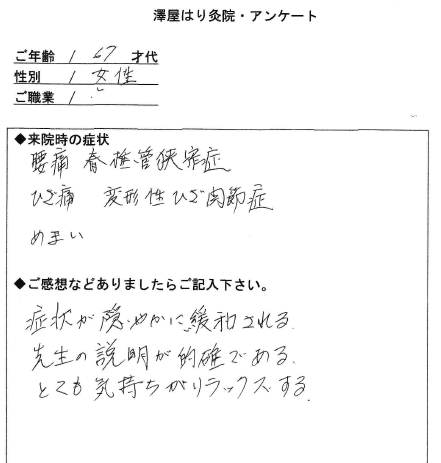 澤屋はり灸院・アンケート
ご年齢 / 67 才代
性別 / 女性
ご職業 /
◆来院時の症状
腰痛 脊柱管狭窄症
ひざ痛 変形性ひざ関節症
めまい
◆ご感想などありましたらご記入下さい。
症状が穏やかに緩和される.
先生の説明が的確である.
とても気持ちがリラックスする.